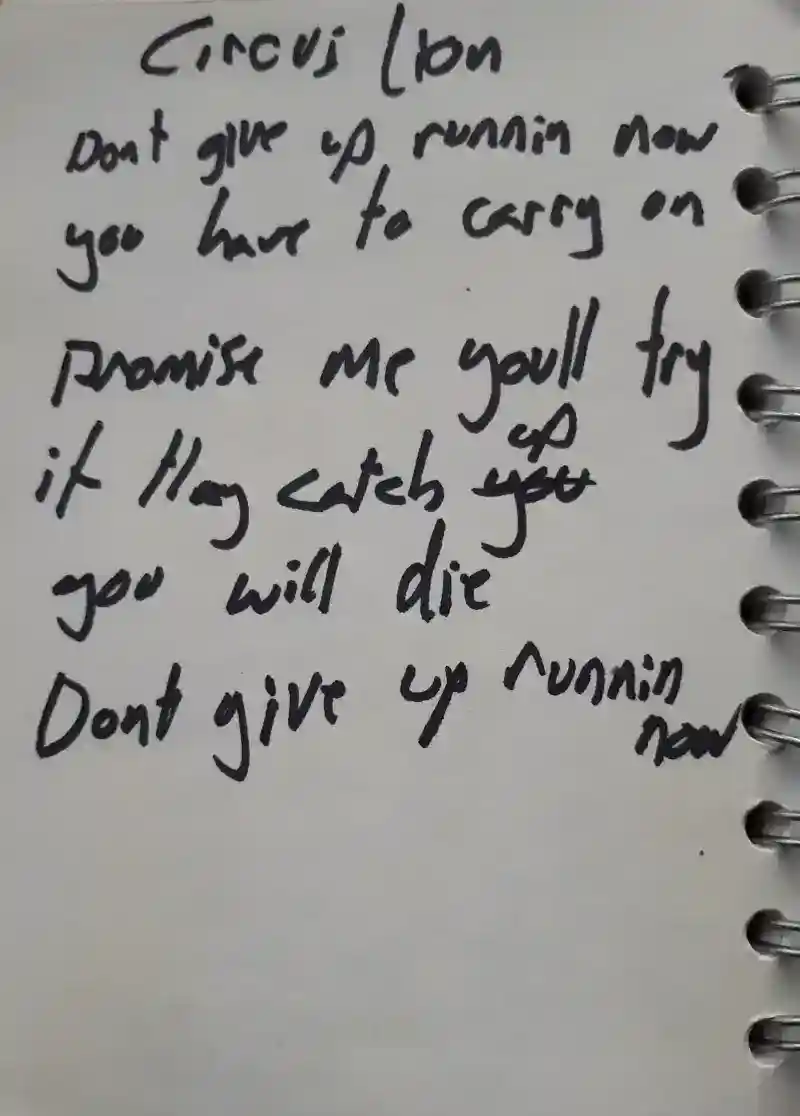 Circus lion
Dont give up runnin now
you have to carry on
promise me youll try
if they catch up
you will die
Dont give up runnin
now